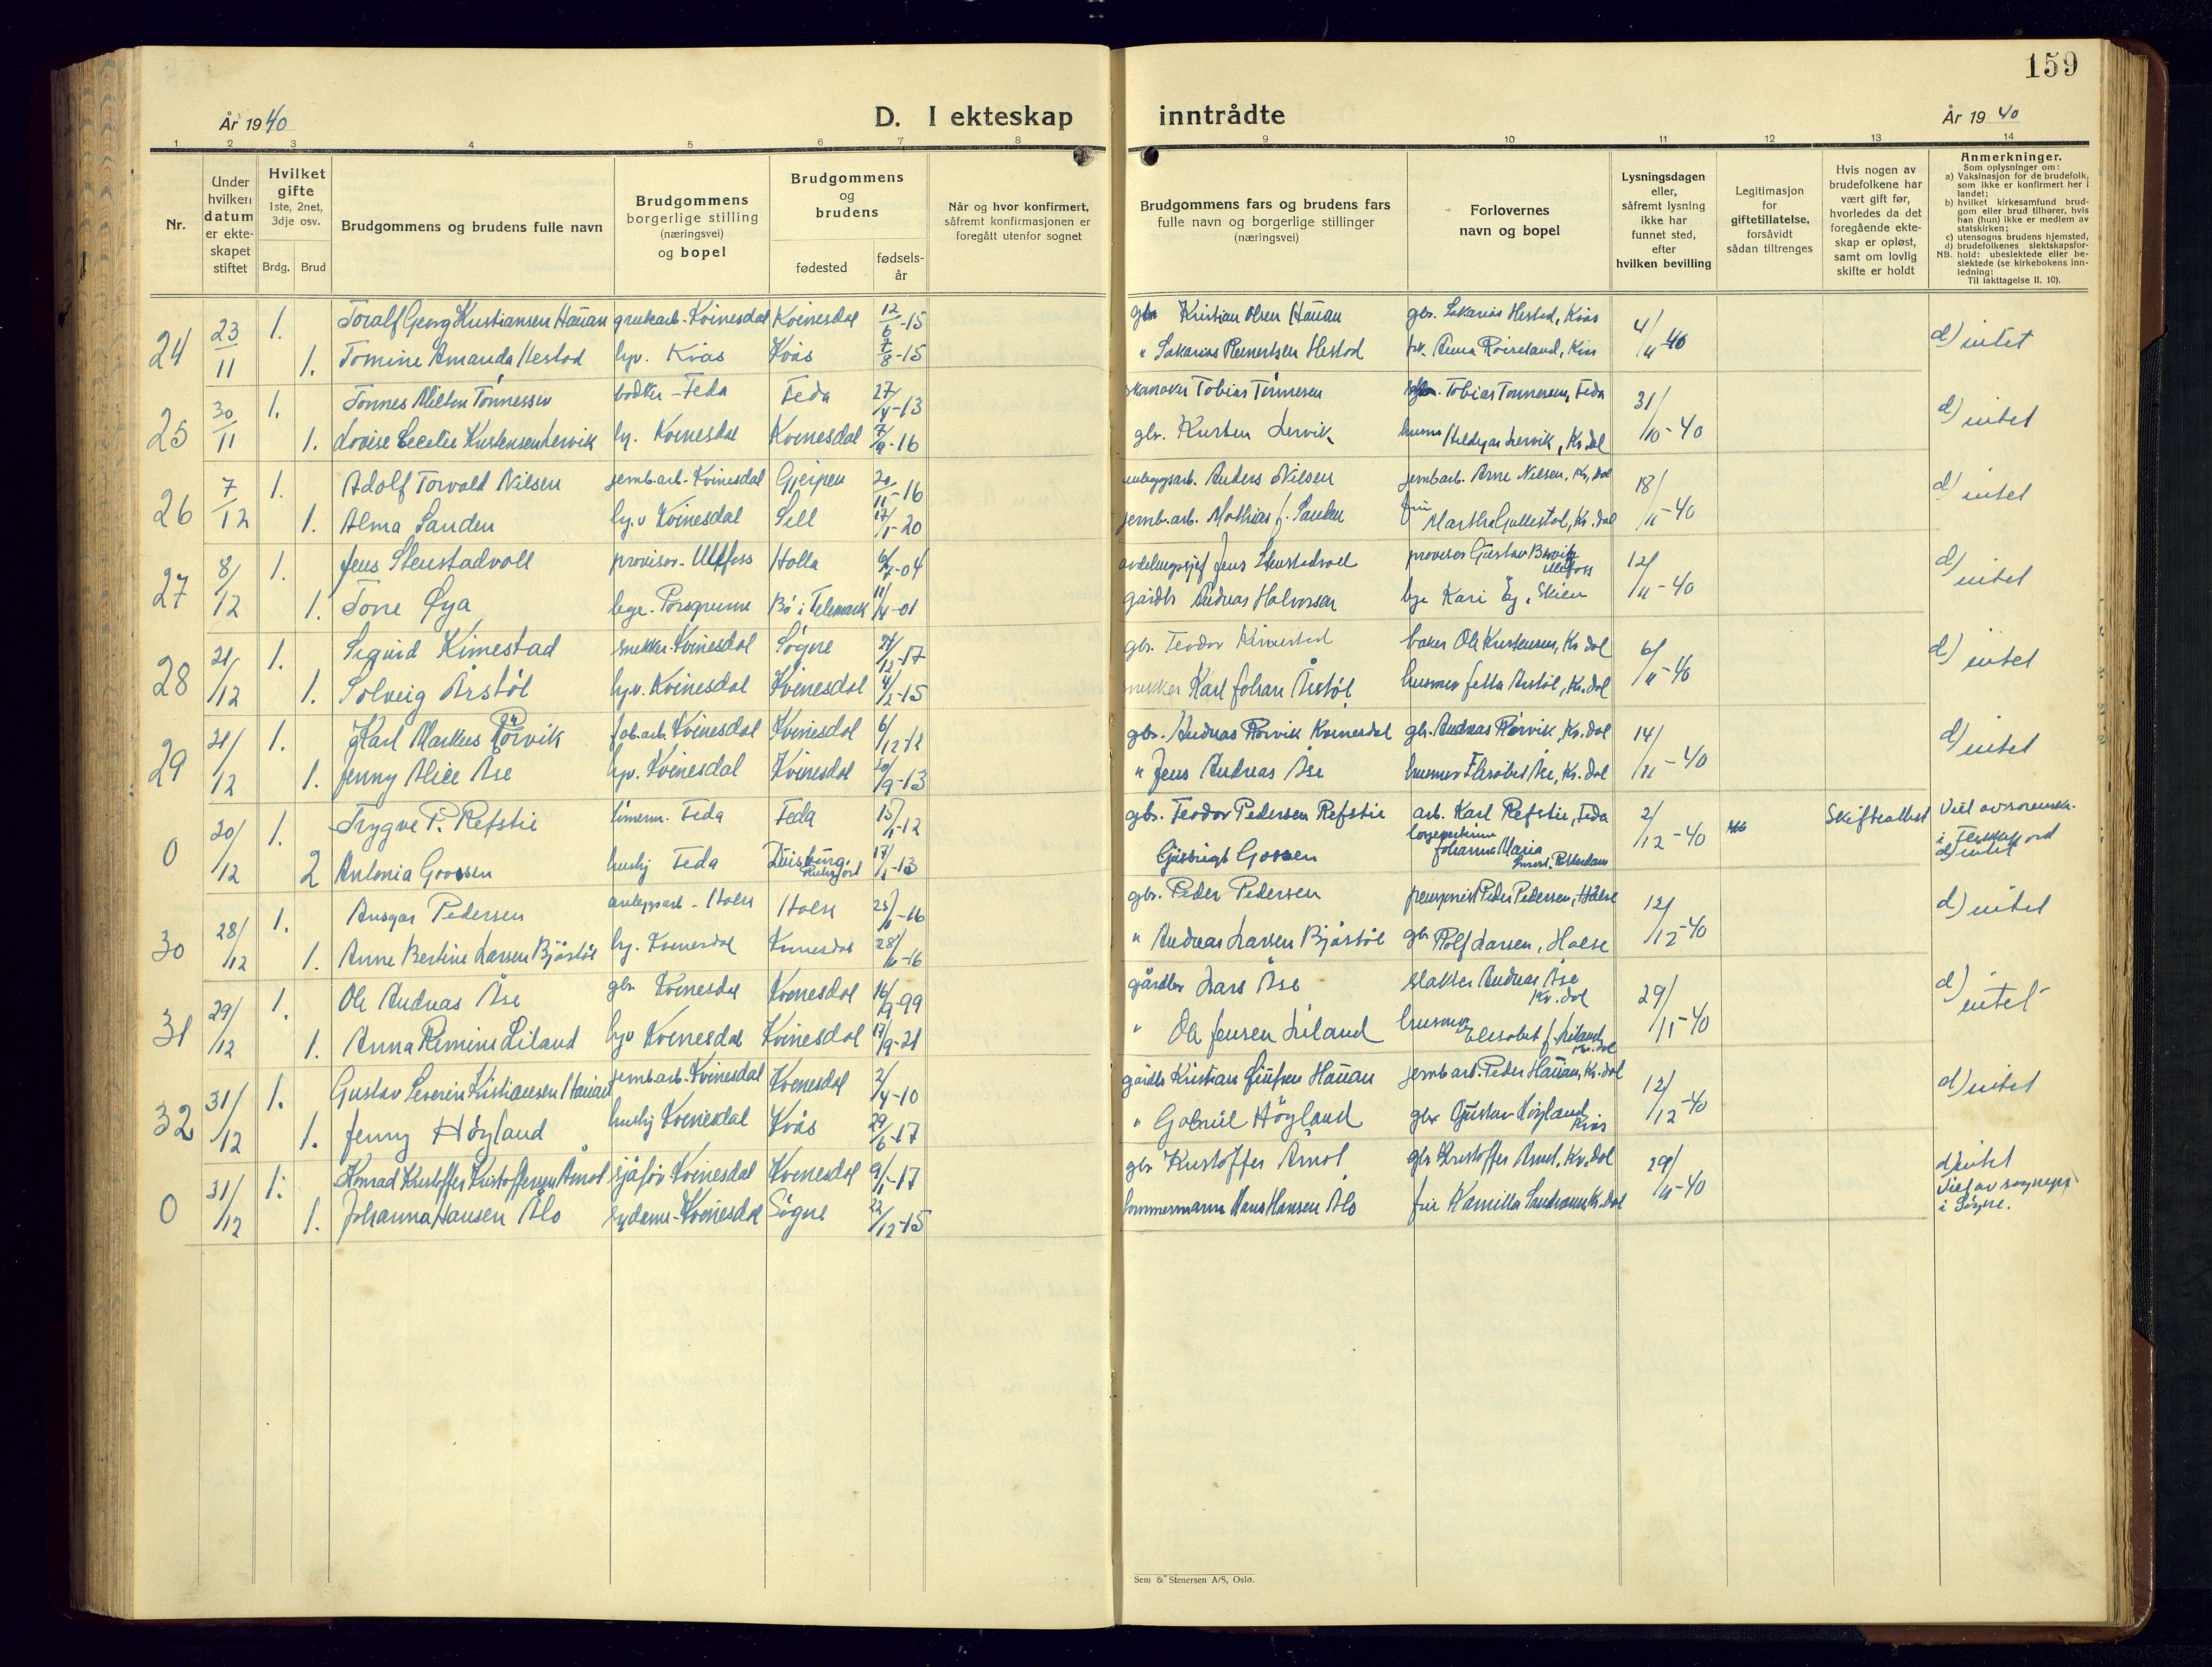 159
År 1940
D. I ekteskap inntrådte
År 1940
1 2 3 4 5 6 7 8 9 10 11 12 13 14
Nr.
Under
hvilken
datum
er ekte-
skapet
stiftet
Hvilket
gifte
1ste, 2net,
3dje osv.
Brdg. Brud
Brudgommens og brudens fulle navn
Brudgommens
borgerlige stilling
(næringsvei)
og bopel
Brudgommens
og
brudens
fødested
fødsels-
år
Når og hvor konfirmert,
såfremt konfirmasjonen er
foregått utenfor sognet
Brudgommens fars og brudens fars
fulle navn og borgerlige stillinger
(næringsvei)
Forlovernes
navn og bopel
Lysningsdagen
eller,
såfremt lysning
ikke har
funnet sted,
efter
hvilken bevilling
Legitimasjon
for
giftetillatelse,
forsåvidt
sådan tiltrenges
Hvis nogen av
brudefolkene har
vært gift før,
hvorledes da det
foregående ekte-
skap er opløst,
samt om lovlig
skifte er holdt
Anmerkninger.
Som oplysninger om:
a) Vaksinasjon for de brudefolk,
som ikke er konfirmert her i
landet;
b) hvilket kirkesamfund brud-
gom eller brud tilhører, hvis
han (hun) ikke er medlem av
statskirken;
c) utensogns brudens hjemsted,
d) brudefolkenes slektskapsfor-
NB. hold: ubeslektede eller be-
slektede (se kirkebokens inn-
ledning:
Til iakttagelse II. 10).
24 23/11 1. Toralf Georg Kristiansen Hauan grubearb. Kvinesdal Kvinesdal 12/6-15 gbr. Kristian Olsen Hauan gbr. Sakarias Hestad, Kvås 4/11-40 d) intet
1. Tomine Amanda Hestad hjv. Kvås Kvås 7/8-15 " Sakarias Reinertsen Hestad frk. Anna Røireland, Kvås
25 30/11 1. Tønnes Milton Tønnessen bødker - Feda Feda 27/4-13 Tobias Tønnesen Tobias Tønnesen, Feda 31/10-40 d) intet
1. Lovise Cecelie Kristensen Lervik hj. Kvinesdal Kvinesdal 7/9-16 gbr. Kristen Lervik husm. Hildegar Lervik, Kv.dal
26 7/12 1. Adolf Torvald Nilsen jernb.arb. Kvinesdal Gjerpen 20/11-16 anleggsarb. Anders Nilsen jernb.arb. Arne Nilsen, Kv.dal 18/11-40 d) intet
1. Alma Sanden hj.v Kvinesdal Sell 27/1-20 jernb.arb. Mathias J. Sanden fru Martha Gullestol, Kv.dal
27 8/12 1. Jens Stenstadvoll provisor - Ulefoss Holla 6/7-04 avdelingssjef Jens Stenstadvoll provisor Gustav Ulefoss 12/11-40 d) intet
1. Tone Øya lege. Porsgrunn Bø i Telemark 11/4-01 gårdbr Andreas Halvorsen lege Kari Eg, Skien
28 21/12 1. Sigurd Kimestad snekker. Kvinesdal Søgne 24/12-17 gbr. Teodor Kimestad baker Ole Kristensen, Kv.dal 6/11-40 d) intet
1. Solveig Årstøl hjv. Kvinesdal Kvinesdal 4/2-15 snekker Karl Johan Årstøl husmor Jetta Årstøl, Kv.dal
29 21/12 1. Karl Markus Rørvik fab.arb. Kvinesdal Kvinesdal 6/12-12 gbr. Andreas Rørvik Kvinesdal gbr. Andreas Rørvik, Kv.dal 14/11-40 d) intet
1. Jenny Alice Åse hjv. Kvinesdal Kvinesdal 20/9-13 " Jens Andreas Åse husmor Elisabet Åse, Kv.dal
0 20/12 1. Trygve T. Refstie tømerm. Feda Feda 15/1-12 gbr. Teodor Pedersen Refstie arb. Karl Refstie, Feda 2/12-40 Skifteattest Viet av sorenskr. i Flekkefjord d) intet
2 Antonia Goossen hushj Feda Duisburg. Ruhrort 17/1-13 Goosen Johanna Maria Rotterdam
30 28/12 1. Ansgar Pedersen anleggsarb - Halse Halse 25/-16 gbr. Peder Pedersen pensjonist Peder Pedersen, Halse 12/12-40 d) intet
1. Anne Bertine Larsen Bjåstøl hj. Kvinesdal Kvinesdal 28/-16 " Andreas Larsen Bjåstøl gbr Rolf Larsen, Halse
31 29/12 1. Ole Andreas Åse gbr Kvinesdal Kvinesdal 16/9-99 gårdbr Lars Åse slakter Andreas Åse Kv.dal 29/11-40 d) intet
1. Anna Remine Liland hjv Kvinesdal Kvinesdal 17/9-21 " Ole Jensen Liland husmor Elisabet J. Liland Kv.dal
32 31/12 1. Gustav Severin Kristiansen Hauan jernb.arb. Kvinesdal Kvinesdal 2/4-10 gårdbr Kristian Hauan jernb.arb. Peder Hauan, Kv.dal 12/12-40 d) intet
1. Jenny Høyland hushj Kvinesdal Kvås 29/6-17 " Gabriel Høyland gbr Gustav Høyland Kvås
0 31/12 1. Konrad Kristoffer Kristoffersen Årnot sjåfør Kvinesdal Kvinesdal 9/1-17 gbr Kristoffer Årnot gbr Kristoffer Årnot, Kv.dal 29/11-40 d) intet Viet av sognepr. i Søgne.
1. Johanna Hansen Ålo sydame - Kvinesdal Søgne 22/12-15 tømmermann Hans Hansen Ålo fru Kamilla Kv.dal
Sem & Stenersen A/S, Oslo.